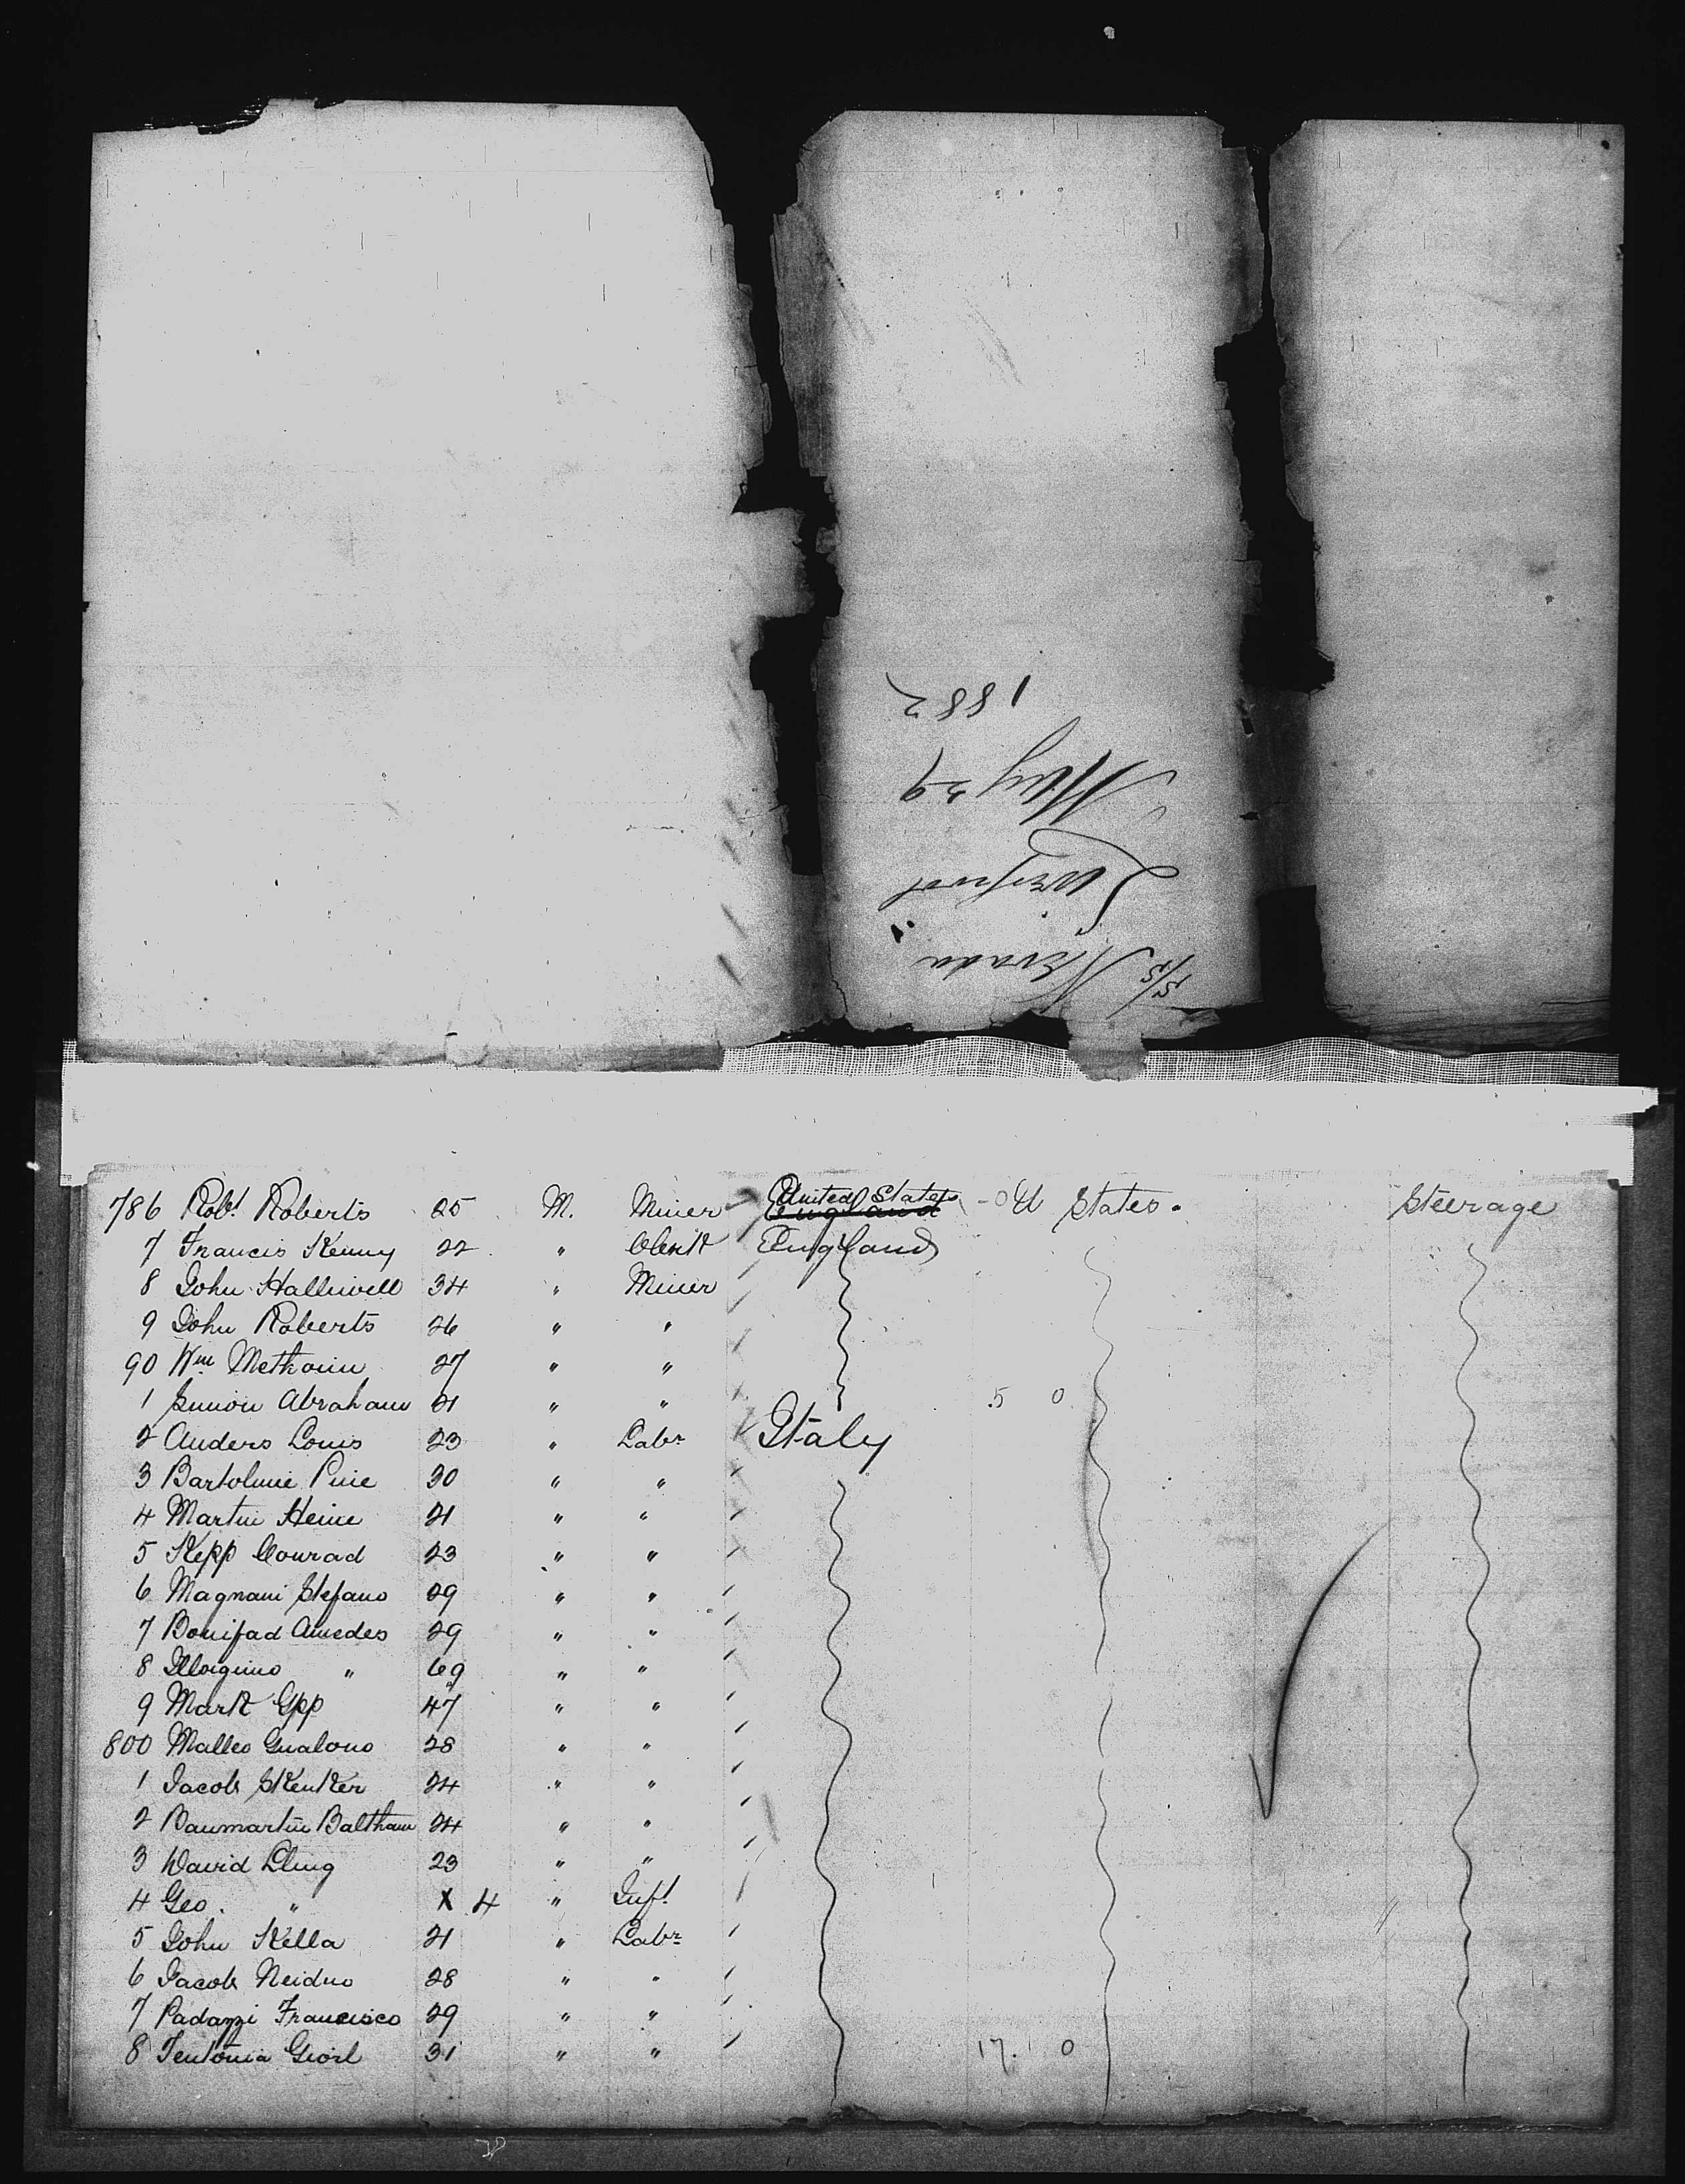 S/S Nevada
Liverpool
May 29
1882
786 Robt Roberts 25 M. Miner United States England - 0 U States. Steerage
7 Francis Kenny 22 " Clerk England
8 John Halliwell 34 " Miner
9 John Roberts 26 " "
90 Wm 27 " "
1 Simon Abraham 21 " " 5 0
2 Anders Louis 23 " Labr Italy
3 Bartolmie 30 " "
4 Martin Heine 21 " "
5 Kepp Conrad 23 " "
6 Magnani Stefano 29 " "
7 Bonifad Amedes 29 " "
8 " 69 " "
9 Mark Gpp 47 " "
800 Malleo Gualono 28 " "
1 Jacob Skenker 24 " "
2 Baumartin Baltham 24 " "
3 David 23 " "
4 Geo. " X 4 " Inft
5 John Kella 21 " Labr
6 Jacob Neidno 28 " "
7 Padazzi Francisco 29 " "
8 31 " " 17. 0